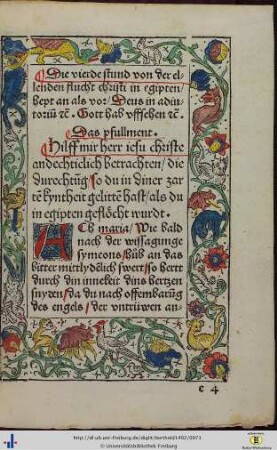 Die vierde stund von der el-
lenden flucht christi in egipten/
hept an als vor/ Deus in adiu-
toriū ꝛc̄. Gott hab vffsehen ꝛc̄.
Das psallment.
Hilff mir herr iesu christe
andechticlich betrachten/ die
durechtūg/ so du in diner zar
tē kyntheit gelittē hast/ als du
in egipten geflöcht wurdt.
Ach maria/ Wie bald
nach der wissagunge
symeons/ hůb an das
bitter mittlydēlich swert/ so hertt
durch din innekeit dins hertzen
snyden/ da du nach offembarūg
des engels/ der vntrüwen an-
c 4
http://dl.ub.uni-freiburg.de/diglit/berthold1492/0071
© Universitätsbibliothek Freiburg